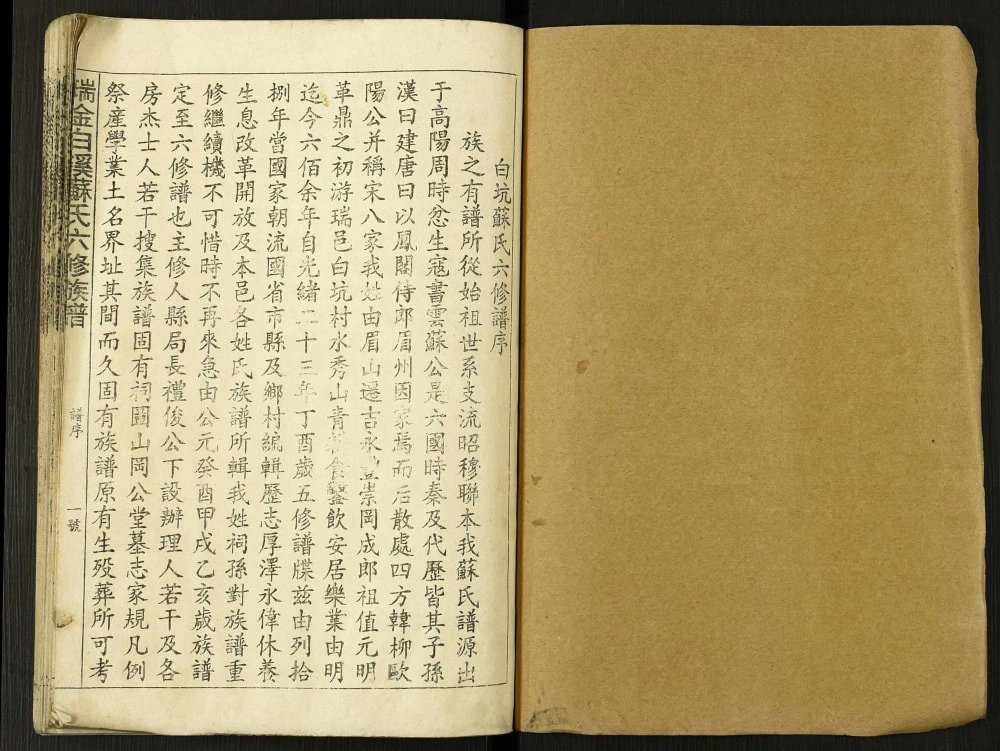 白坑蘇氏六修譜序
族之有譜所從始祖世系支流昭穆聯本我蘇氏譜源出
于高陽周時忿生寇書雲蘇公是六國時秦及代歷皆其子孫
漢曰建唐曰以鳳閣侍郎眉州因家焉而后散處四方韓柳歐
陽公并稱宋八家我姓由眉山遷吉永豐崇岡成郎祖值元明
革鼎之初游瑞邑白坑村水秀山青食鑿飲安居樂業由明
迄今六佰余年自光緒二十三年丁酉歲五修譜牒兹由列拾
捌年當國家朝流國省市縣及鄉村編輯歷志厚澤永偉休養
生息改革開放及本邑各姓氏族譜所輯我姓祠孫對族譜重
修繼續機不可惜時不再來急由公元癸酉甲戌乙亥歲族譜
定至六修譜也主修人縣局長禮俊公下設辦理人若干及各
房杰士人若干搜集族譜固有祠圖山岡公堂墓志家規凡例
祭產學業土名界址其間而久固有族譜原有生歿葬所可考
瑞金白溪蘇氏六修族譜
譜序
一號